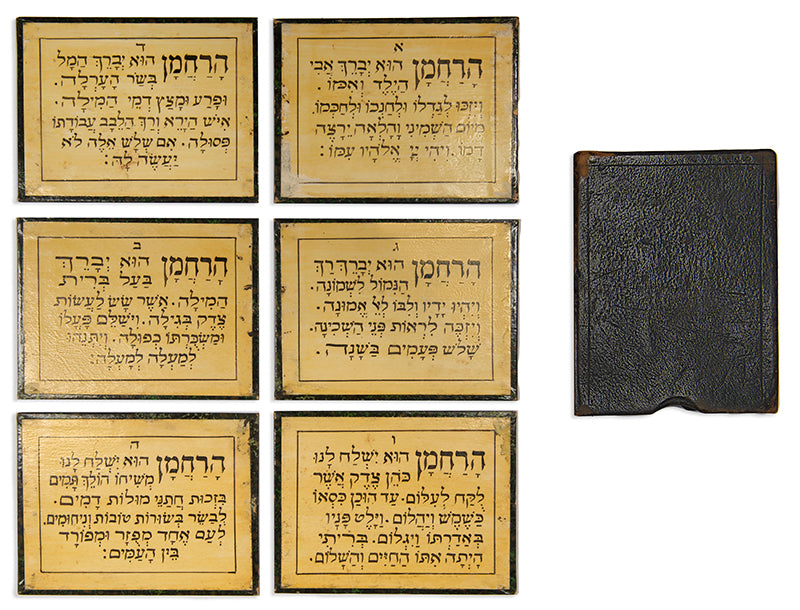 א
הָרַחֲמָן הוּא יְבָרֵךְ אֲבִי
הַיֶּלֶד וְאִמּוֹ.
וְיִזְכּוּ לְגַדְּלוֹ וּלְחַנְּכוֹ וּלְחַכְּמוֹ
מִיּוֹם הַשְּׁמִינִי וָהָלְאָה יֵרָצֶה
דָמוֹ. וִיהִי יְיָ אֱלֹהָיו עִמּוֹ:
ד
הָרַחֲמָן הוּא יְבָרֵךְ הַמָּל
בְּשַׂר הָעָרְלָה.
וּפָרַע וּמָצַץ דְּמֵי הַמִּילָה.
אִישׁ הַיָּרֵא וְרַךְ הַלֵּבָב עֲבוֹדָתוֹ
פְּסוּלָה. אִם שְׁלָשׁ אֵלֶּה לֹא
יַעֲשֶׂה לָהּ:
ג
הָרַחֲמָן הוּא יְבָרֵךְ רַךְ
הַנִּמּוֹל לִשְׁמוֹנָה.
וְיִהְיוּ יָדָיו וְלִבּוֹ לַיְיָ אֱמוּנָה.
וְיִזְכֶּה לִרְאוֹת פְּנֵי הַשְּׁכִינָה.
שָׁלֹשׁ פְּעָמִים בַּשָּׁנָה.
ב
הָרַחֲמָן הוּא יְבָרֵךְ
בַּעַל בְּרִית
הַמִּילָה. אֲשֶׁר שָׂשׂ לַעֲשׂוֹת
צֶדֶק בְּגִילָה. וִישַׁלֵּם פָּעֳלוֹ
וּמַשְׂכֻּרְתּוֹ כְּפוּלָה. וְיִתְּנֵהוּ
לְמַעְלָה לְמָעְלָה:
ו
הָרַחֲמָן הוּא יִשְׁלַח לָנוּ
כֹּהֵן צֶדֶק אֲשֶׁר
לֻקַּח לְעֵלוֹם. עַד הוּכַן כִּסְאוֹ
כַּשֶּׁמֶשׁ וְיַהֲלוֹם. וַיָּלֶט פָּנָיו
בְּאַדַּרְתּוֹ וַיִּגְלוֹם. בְּרִיתִי
הָיְתָה אִתּוֹ הַחַיִּים וְהַשָּׁלוֹם.
ה
הָרַחֲמָן הוּא יִשְׁלַח לָנוּ
מְשִׁיחוֹ הוֹלֵךְ תָּמִים
בִּזְכוּת חַתְנֵי מוּלוֹת דָּמִים.
לְבַשֵּׂר בְּשׂוֹרוֹת טוֹבוֹת וְנִיחוּמִים.
לְעַם אֶחָד מְפֻזָּר וּמְפוֹרָד
בֵּין הָעַמִּים: